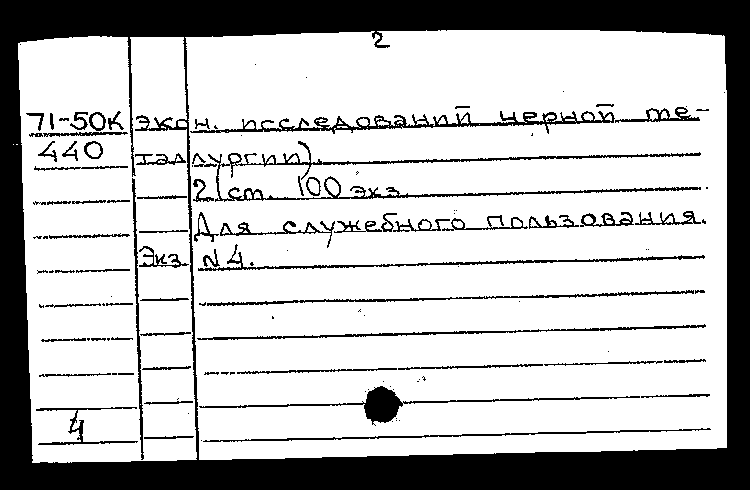 2
71-50К экон. исследований черной ме-
440 таллургии).
21 ст. 100 экз.
Для служебного пользования.
Экз. N4.
4